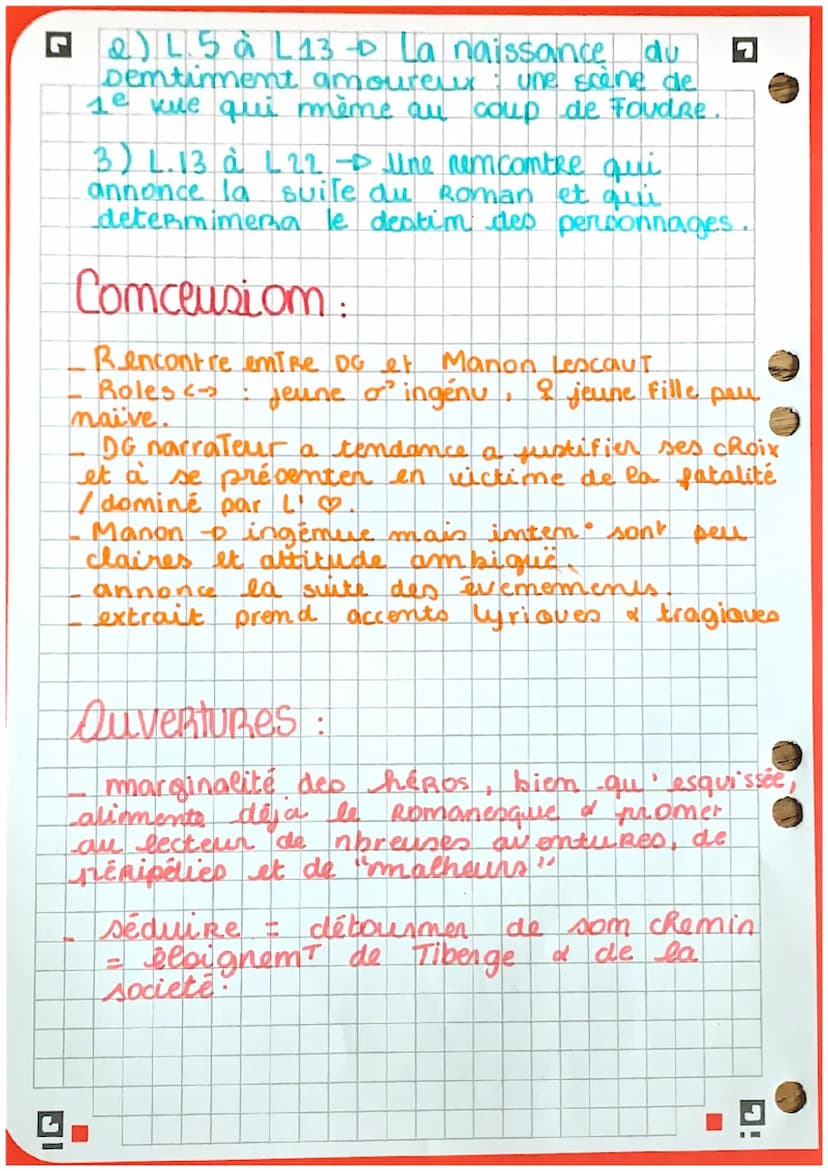 2) L.5 à L13 → La naissance du
sentiment amoureux : une scène de
1e vue qui mène au coup de foudre.
3) L.13 à L22 → Une rencontre qui
annonce la suite du Roman et qui
determinera le destin des personnages.
Conclusion :
- Rencontre entre DG et Manon Lescaut
- Roles <-> : jeune ♂ ingénu, ♀ jeune fille peu
naïve.
- DG narrateur a tendance a justifier ses choix
et à se présenter en victime de la fatalité
/ dominé par L'♡.
- Manon → ingénue mais inten° sont peu
claires et attitude ambiguë.
- annonce la suite des évenements.
- extrait prend accents lyriques & tragiques
Ouvertures :
- marginalité des héros, bien qu'esquissée,
alimente déja le Romanesque & promet
au lecteur de nbreuses aventures, de
péripéties et de "malheurs"
- séduire = détourner de son chemin
= éloignemt de Tiberge & de la
societé.